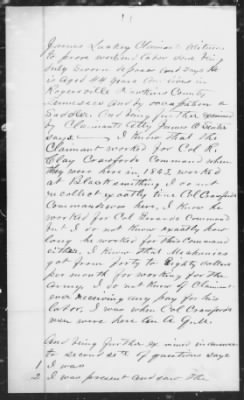 James Lackey Claimant witness
to prove work and labor done being
duly sworn deposes and says he
is aged 44 years and lives in
Rogersville Hawkins County
Tennessee and by occupation a
Saddler. And being further examined
by Claimants Atty James
says — I know that the
Claimant worked for Col R.
Clay Crawfords Command when
they were here in 1863 worked
at Blacksmithing I do not
recollect exactly how Col Crawfords
Command was here, I know he
worked for Col Command
but I do not know exactly how
long he worked for this Command
either, I know that Mechanics
got from forty to Eighty dollars
per month for working for the
Army. I do not know of Claimant
ever receiving any pay for his
labor. I was when Col Crawfords
men were here
And being further examined in answer
to second set of questions says
1 I was
2 I was present and saw the